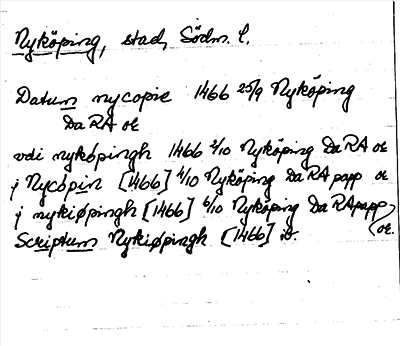 Nyköping, stad, Södm. l.
Datum nycopie 1466 25/9 Nyköping
DaRA or
vdi nykøpingh 1466 2/10 Nyköping DaRA or
j Nycöpin [1466] 4/10 Nyköping DaRA papp or
j nykiøpingh [1466] 6/10 Nyköping DaRApapp
or.
Scriptum Nykiøpingh [1466] ib.